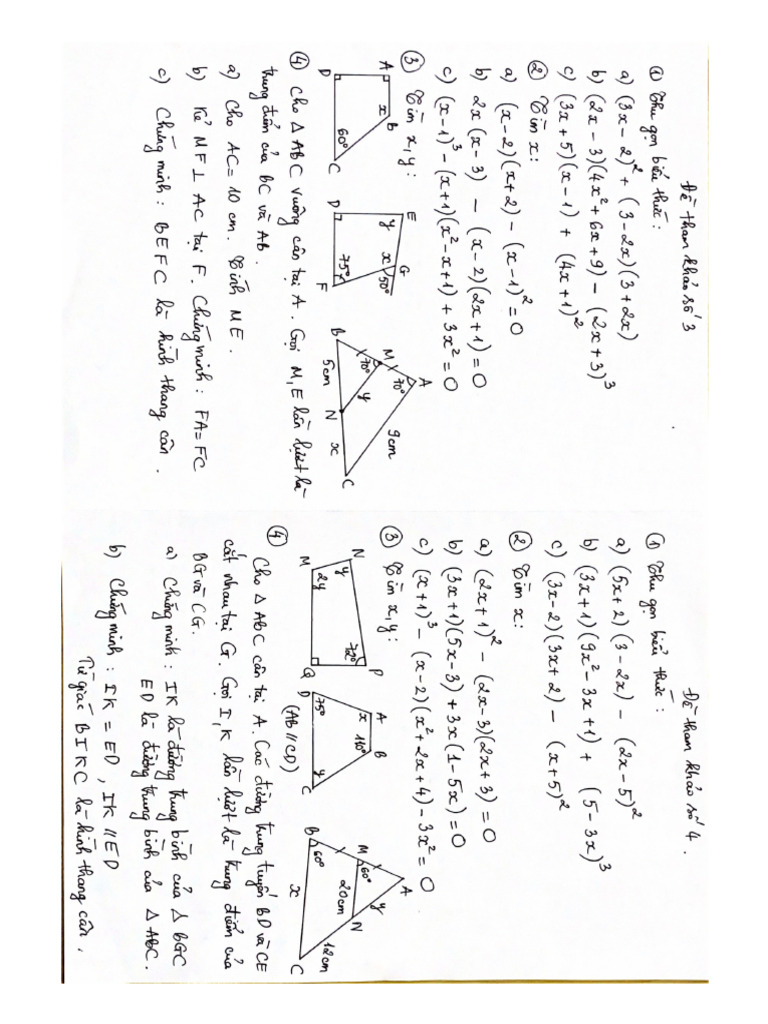 Đề tham khảo số 3
① Thu gọn biểu thức :
a) (3x - 2)² + (3 - 2x)(3 + 2x)
b) (2x - 3)(4x² + 6x + 9) - (2x + 3)³
c) (3x + 5)(x - 1) + (4x + 1)²
② Tìm x :
a) (x - 2)(x + 2) - (x - 1)² = 0
b) 2x(x - 3) - (x - 2)(2x + 1) = 0
c) (x - 1)³ - (x + 1)(x² - x + 1) + 3x² = 0
③ Tìm x, y :
A B x 60° D C
E y G x 50° D 75° F
A 70° M 70° y 9cm B 5cm N x C
④ Cho △ABC vuông cân tại A. Gọi M, E lần lượt là
trung điểm của BC và AB.
a) Cho AC = 10 cm. Tính ME.
b) Kẻ MF ⊥ AC tại F. Chứng minh : FA = FC
c) Chứng minh : BEFC là hình thang cân.
Đề tham khảo số 4.
① Thu gọn biểu thức :
a) (5x + 2)(3 - 2x) - (2x - 5)²
b) (3x + 1)(9x² - 3x + 1) + (5 - 3x)³
c) (3x - 2)(3x + 2) - (x + 5)²
② Tìm x :
a) (2x + 1)² - (2x - 3)(2x + 3) = 0
b) (3x + 1)(5x - 3) + 3x(1 - 5x) = 0
c) (x + 1)³ - (x - 2)(x² + 2x + 4) - 3x² = 0
③ Tìm x, y :
N y P 72° M 2y Q
A x B 110° D 75° y C
(AB // CD)
A y M 60° N 20cm 12cm B 60° x C
④ Cho △ABC cân tại A. Các đường trung tuyến BD và CE
cắt nhau tại G. Gọi I, K lần lượt là trung điểm của
BG và CG.
a) Chứng minh : IK là đường trung bình của △BGC
ED là đường trung bình của △ABC.
b) Chứng minh : IK = ED, IK // ED
Tứ giác BIKC là hình thang cân.